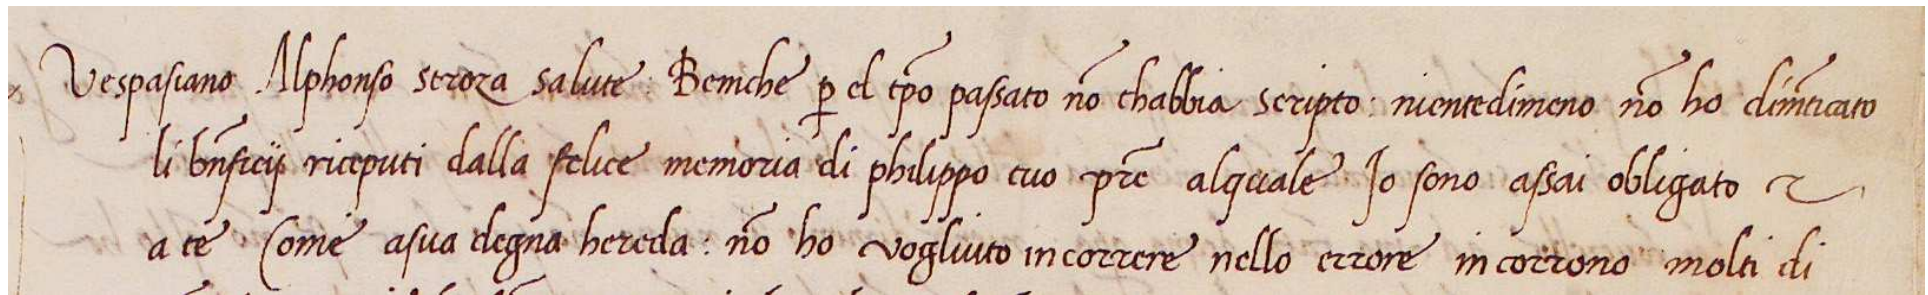 Vespasiano Alphonso stroza salute. Benche p el tp̃o passato nõ thabbia scripto: nientedimeno nõ ho dim̃ticato
li bñficij riceputi dalla felice memoria di philippo tuo pr̃e alquale Io sono assai obligato et
a te Come a sua degna hereda: nõ ho vogluto incorrere nello errore incorrono molti di